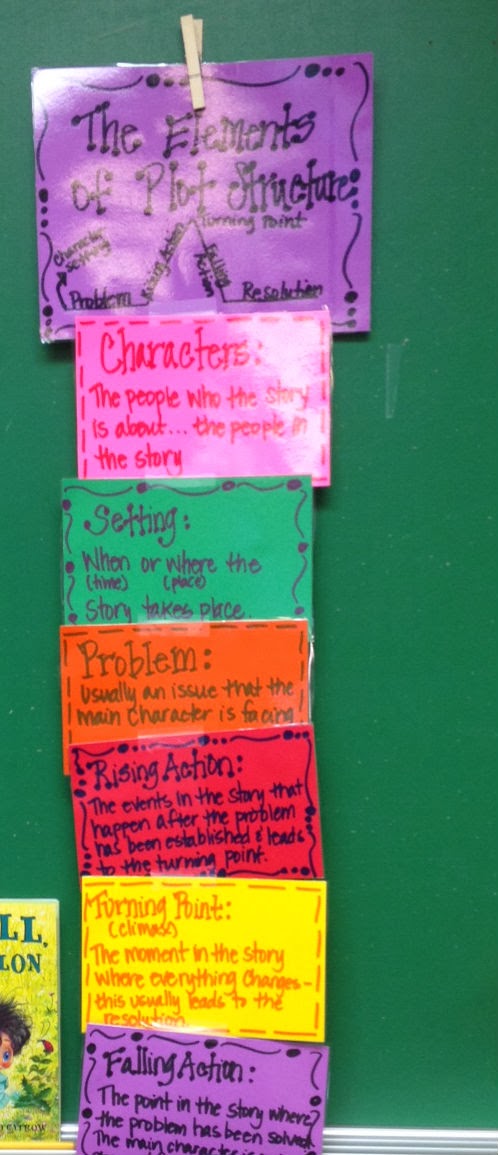 The Elements
of Plot Structure
Turning Point
Character
Setting
Rising Action
Falling
Action
Problem
Resolution
Characters:
The people who the story
is about... the people in
the story
Setting:
When or where the
(time) (place)
Story takes place.
Problem:
Usually an issue that the
main character is facing
Rising Action:
The events in the story that
happen after the problem
has been established & leads
to the turning point.
Turning Point:
(climax)
The moment in the story
where everything changes-
this usually leads to the
resolution.
Falling Action:
The point in the story where
the problem has been solved.
The main character is
LL,
LON